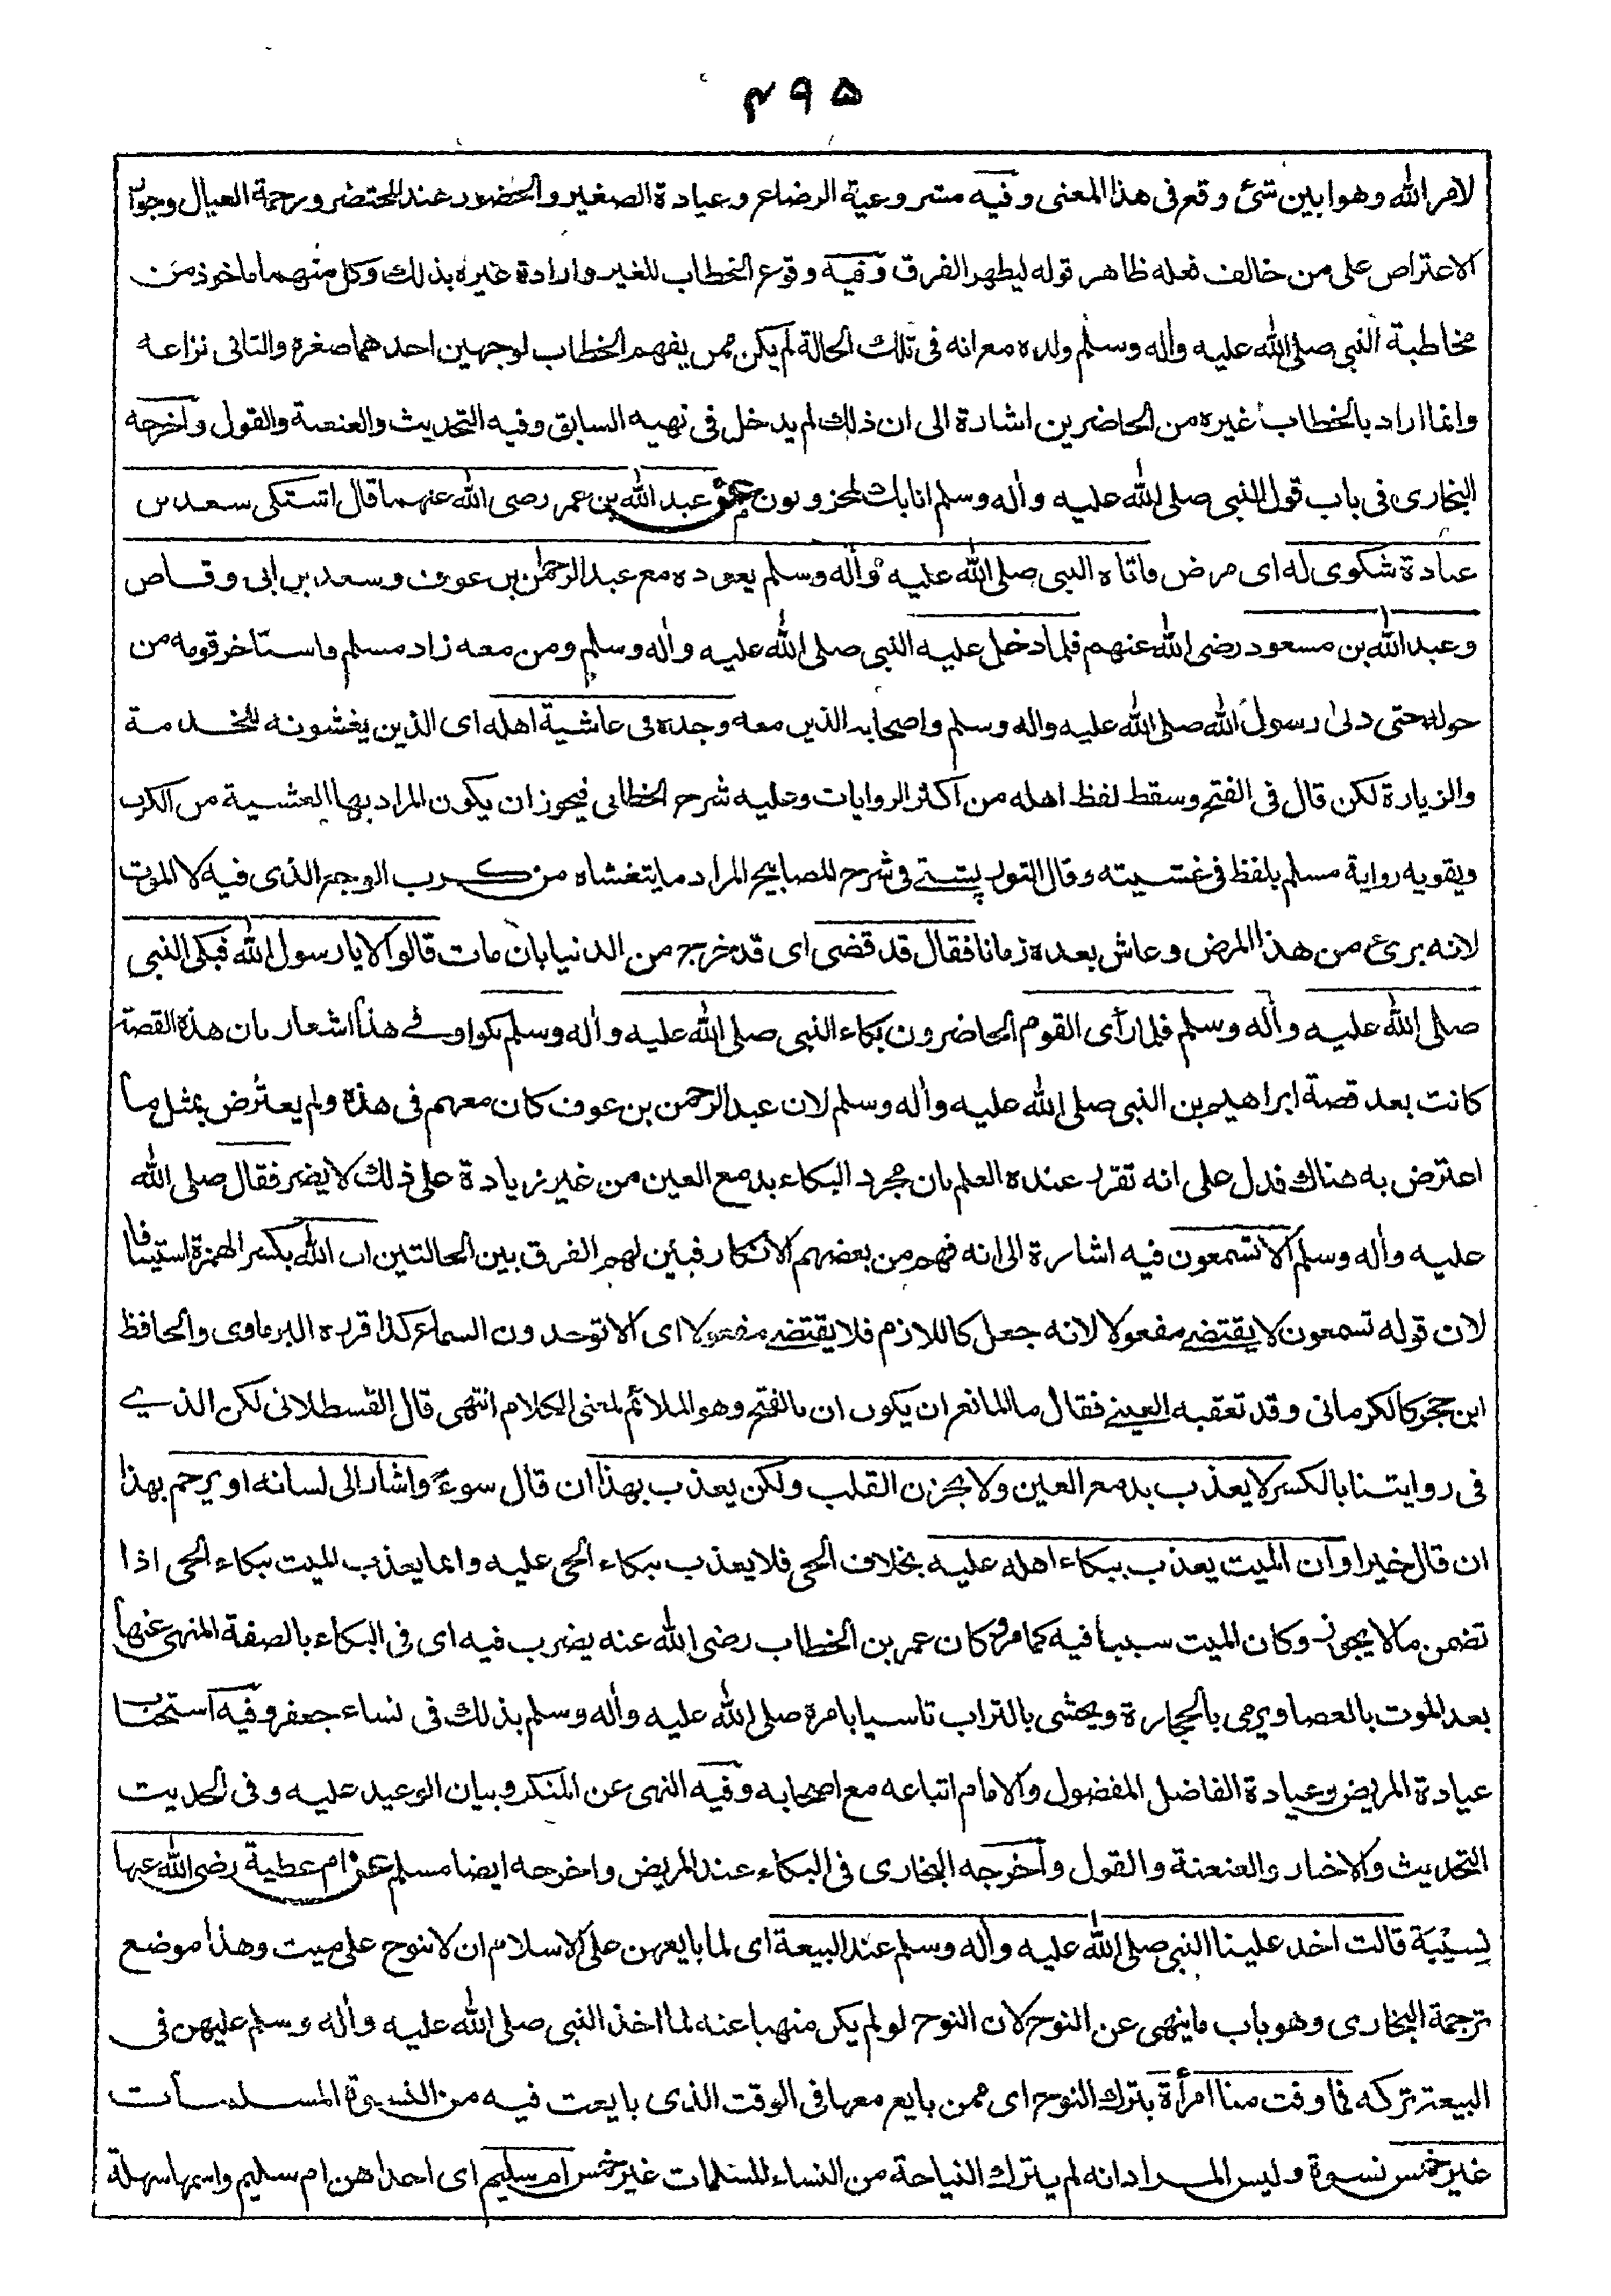 ۴۹۵
لامر الله وهو ابين شئ وقع فى هذا المعنى وفيه مشروعية الرضاع وعيادة الصغير والحضور عند المحتضر ورحمة العيال وجواز
الاعتراض على من خالف فعله ظاهر قوله ليظهر الفرق وفيه وقوع الخطاب للغير وارادة غيره بذلك وكل منهما ماخوذ من
مخاطبة النبى صلى الله عليه واٰله وسلم ولده مع انه فى تلك الحالة لم يكن ممن يفهم الخطاب لوجهين احدهما صغره والثانى نزاعه
وانما اراد بالخطاب غيره من الحاضرين اشارة الى ان ذلك لم يدخل فى نهيه السابق وفيه التحديث والعنعنة والقول واخرجه
البخارى فى باب قول النبى صلى الله عليه واٰله وسلم انا بك لمحزونون عن عبد الله بن عمر رضى الله عنهما قال اشتكى سعد بن
عبادة شكوى له اى مرض فاتاه النبى صلى الله عليه واٰله وسلم يعوده مع عبد الرحمٰن بن عوف وسعد بن ابى وقاص
وعبد الله بن مسعود رضى الله عنهم فلما دخل عليه النبى صلى الله عليه واٰله وسلم ومن معه زاد مسلم فاستاخر قومه من
حوله حتى دنى رسول الله صلى الله عليه واله وسلم واصحابه الذين معه وجده فى غاشية اهله اى الذين يغشونه للخدمة
والزيارة لكن قال فى الفتح وسقط لفظ اهله من اكثر الروايات وعليه شرح الخطابى فيجوز ان يكون المراد بها الغشية من الكرب
ويقويه رواية مسلم بلفظ فى غشيته وقال التوربشتى فى شرح المصابيح المراد ما يتغشاه من كرب الوجع الذى فيه لا الموت
لانه برئ من هذا المرض وعاش بعده زمانا فقال قد قضى اى قد خرج من الدنيا بان مات قالوا لا يا رسول الله فبكى النبى
صلى الله عليه واٰله وسلم فلما رأى القوم الحاضرون بكاء النبى صلى الله عليه واٰله وسلم بكوا وفى هذا اشعار بان هذه القصة
كانت بعد قصة ابراهيم بن النبى صلى الله عليه واٰله وسلم لان عبد الرحمن بن عوف كان معهم فى هذه ولم يعترض بمثل ما
اعترض به هناك فدل على انه تقرر عنده العلم بان مجرد البكاء بدمع العين من غير زيادة على ذلك لا يضر فقال صلى الله
عليه واٰله وسلم الا تسمعون فيه اشارة الى انه فهم من بعضهم الانكار فبين لهم الفرق بين الحالتين ان الله بكسر الهمزة استينافا
لان قوله تسمعون لا يقتضى مفعولا لانه جعل كاللازم فلا يقتضى مفعولا اى الا توجدون السماع كذا قرره البرماوى والحافظ
ابن حجر كالكرمانى وقد تعقبه العينى فقال ما المانع ان يكون ان بالفتح وهو الملائم لمعنى الكلام انتهى قال القسطلانى لكن الذى
فى روايتنا بالكسر لا يعذب بدمع العين ولا بحزن القلب ولكن يعذب بهذا ان قال سوءً واشار الى لسانه او يرحم بهذا
ان قال خيرا وان الميت يعذب ببكاء اهله عليه بخلاف الحى فلا يعذب ببكاء الحى عليه وانما يعذب الميت ببكاء الحى اذا
تضمن ما لا يجوز وكان الميت سببا فيه كما مر وكان عمر بن الخطاب رضى الله عنه يضرب فيه اى فى البكاء بالصفة المنهى عنها
بعد الموت بالعصا ويرمى بالحجارة ويحثى بالتراب تاسيا بامره صلى الله عليه واٰله وسلم بذلك فى نساء جعفر وفيه استحباب
عيادة المريض وعيادة الفاضل المفضول والامام اتباعه مع اصحابه وفيه النهى عن المنكر وبيان الوعيد عليه وفى الحديث
التحديث والاخبار والعنعنة والقول واخرجه البخارى فى البكاء عند المريض واخرجه ايضا مسلم عن ام عطية رضى الله عنها
نسيبة قالت اخذ علينا النبى صلى الله عليه واٰله وسلم عند البيعة اى لما بايعهن على الاسلام ان لا ننوح على ميت وهذا موضع
ترجمة البخارى وهو باب ما ينهى عن النوح لان النوح لو لم يكن منهيا عنه لما اخذ النبى صلى الله عليه واٰله وسلم عليهن فى
البيعة تركه فما وفت منا امرأة بترك النوح اى ممن بايع معها فى الوقت الذى بايعت فيه من النسوة المسلمات
غير خمس نسوة وليس المراد انه لم يترك النياحة من النساء المسلمات غير خمس ام سليم اى احداهن ام سليم واسمها سهلة